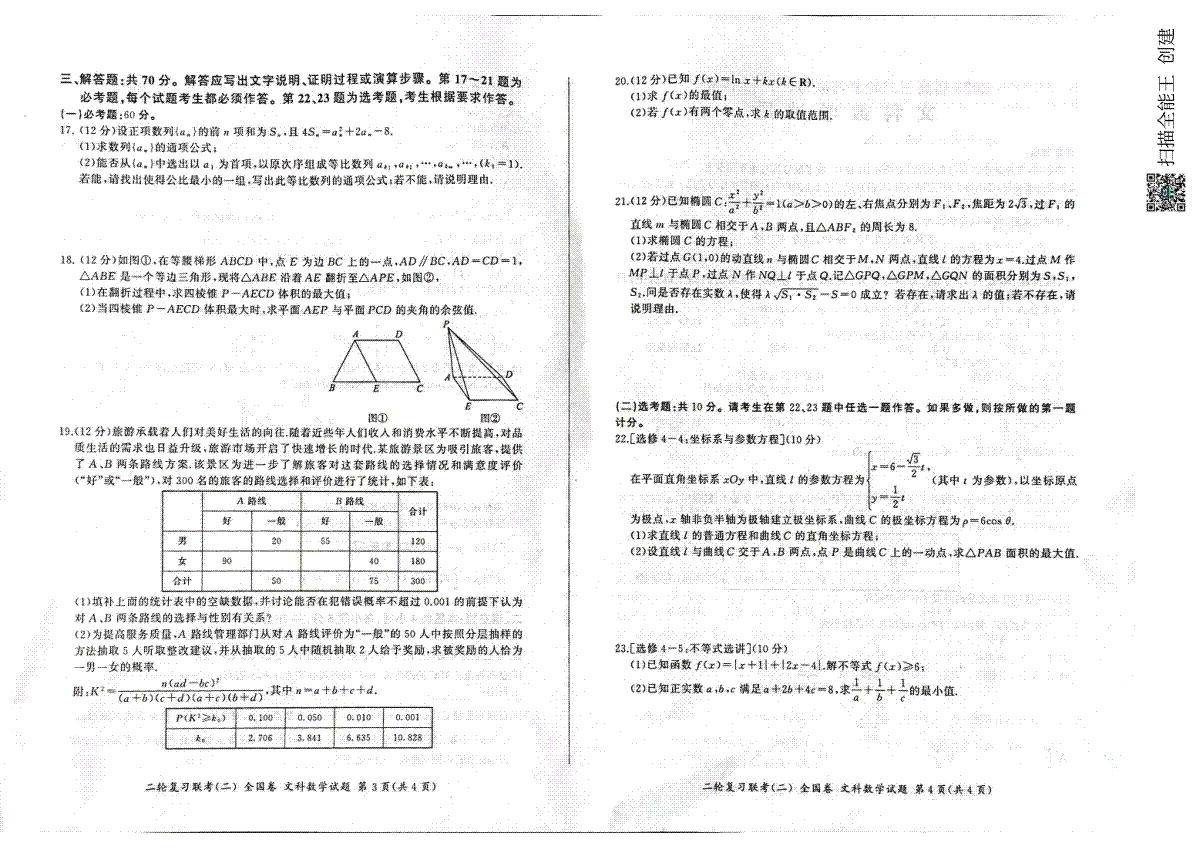 三、解答题:共70分。解答应写出文字说明、证明过程或演算步骤。第17~21题为
必考题,每个试题考生都必须作答。第22、23题为选考题,考生根据要求作答。
(一)必考题:60分。
17.(12分)设正项数列{aₙ}的前n项和为Sₙ,且4Sₙ=aₙ²+2aₙ-8.
(1)求数列{aₙ}的通项公式;
(2)能否从{aₙ}中选出以a₁为首项,以原次序组成等比数列aₖ₁,aₖ₂,…,aₖₘ,…,(k₁=1).
若能,请找出使得公比最小的一组,写出此等比数列的通项公式;若不能,请说明理由.
18.(12分)如图①,在等腰梯形ABCD中,点E为边BC上的一点,AD∥BC,AD=CD=1,
△ABE是一个等边三角形,现将△ABE沿着AE翻折至△APE,如图②,
(1)在翻折过程中,求四棱锥P-AECD体积的最大值;
(2)当四棱锥P-AECD体积最大时,求平面AEP与平面PCD的夹角的余弦值.
A D
B E C
图①
P
A D
E C
图②
19.(12分)旅游承载着人们对美好生活的向往.随着近些年人们收入和消费水平不断提高,对品
质生活的需求也日益升级,旅游市场开启了快速增长的时代.某旅游景区为吸引旅客,提供
了A、B两条路线方案.该景区为进一步了解旅客对这套路线的选择情况和满意度评价
(“好”或“一般”),对300名的旅客的路线选择和评价进行了统计,如下表:
A路线 B路线 合计
好 一般 好 一般
男 20 55 120
女 90 40 180
合计 50 75 300
(1)填补上面的统计表中的空缺数据,并讨论能否在犯错误概率不超过0.001的前提下认为
对A、B两条路线的选择与性别有关系?
(2)为提高服务质量,A路线管理部门从对A路线评价为“一般”的50人中按照分层抽样的
方法抽取5人听取整改建议,并从抽取的5人中随机抽取2人给予奖励,求被奖励的人恰为
一男一女的概率.
附:K²=n(ad-bc)²/((a+b)(c+d)(a+c)(b+d)),其中n=a+b+c+d.
P(K²≥k₀) 0.100 0.050 0.010 0.001
k₀ 2.706 3.841 6.635 10.828
二轮复习联考(二) 全国卷 文科数学试题 第3页(共4页)
20.(12分)已知f(x)=ln x+kx(k∈R).
(1)求f(x)的最值;
(2)若f(x)有两个零点,求k的取值范围.
21.(12分)已知椭圆C:x²/a²+y²/b²=1(a>b>0)的左、右焦点分别为F₁、F₂,焦距为2√3,过F₁的
直线m与椭圆C相交于A,B两点,且△ABF₂的周长为8.
(1)求椭圆C的方程;
(2)若过点G(1,0)的动直线n与椭圆C相交于M,N两点,直线l的方程为x=4.过点M作
MP⊥l于点P,过点N作NQ⊥l于点Q.记△GPQ,△GPM,△GQN的面积分别为S,S₁,
S₂.问是否存在实数λ,使得λ√(S₁·S₂)-S=0成立?若存在,请求出λ的值;若不存在,请
说明理由.
(二)选考题:共10分。请考生在第22、23题中任选一题作答。如果多做,则按所做的第一题
计分。
22.[选修4-4:坐标系与参数方程](10分)
在平面直角坐标系xOy中,直线l的参数方程为{x=6-(√3/2)t, y=(1/2)t (其中t为参数),以坐标原点
为极点,x轴非负半轴为极轴建立极坐标系,曲线C的极坐标方程为ρ=6cos θ.
(1)求直线l的普通方程和曲线C的直角坐标方程;
(2)设直线l与曲线C交于A,B两点,点P是曲线C上的一动点,求△PAB面积的最大值.
23.[选修4-5:不等式选讲](10分)
(1)已知函数f(x)=|x+1|+|2x-4|.解不等式f(x)≥6;
(2)已知正实数a,b,c满足a+2b+4c=8,求1/a+1/b+1/c的最小值.
二轮复习联考(二) 全国卷 文科数学试题 第4页(共4页)
扫描全能王 创建